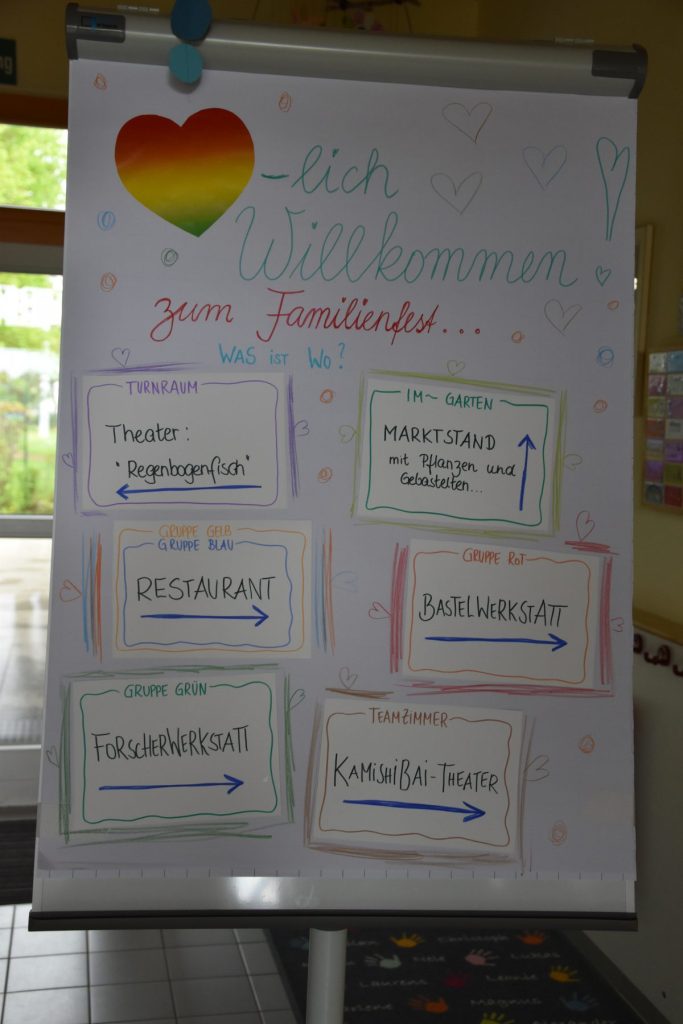 -lich
Willkommen
zum Familienfest...
WAS iST WO?
TURNRAUM
Theater:
"Regenbogenfisch"
IM~ GARTEN
MARKTSTAND
mit Pflanzen und
Gebastelten...
GRUPPE GELB
GRUPPE BLAU
RESTAURANT
GRUPPE ROT
BASTELWERKSTATT
GRUPPE GRÜN
FORSCHERWERKSTATT
TEAMZIMMER
KAMiSHiBAi-THEATER
Christoph
Nele
Lukas
Laurens
Lennie
Magnus